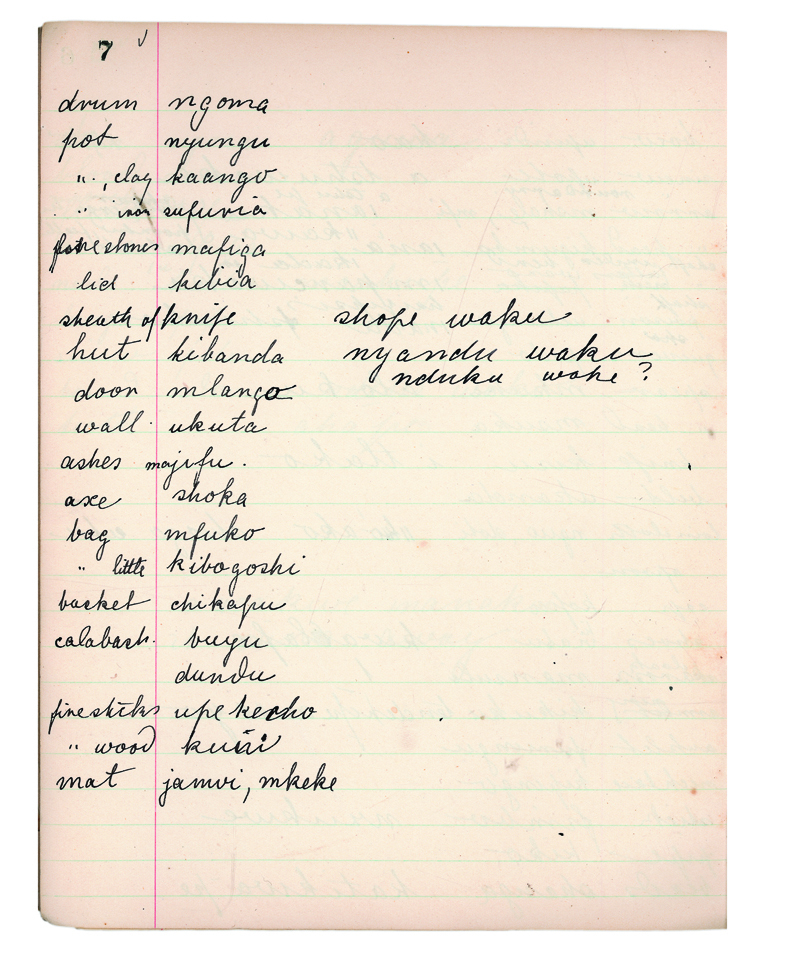 7 ✓
drum ngoma
pot nyungu
" , clay kaango
" iron sufuria
firestones mafiga
lid kibia
sheath of knife shope waku
hut kibanda nyandu waku
nduku wake ?
door mlango
wall ukuta
ashes majifu .
axe shoka
bag mfuko
" little kibogoshi
basket chikapu
calabash. buyu
dundu
firesticks upekecho
" wood kuni
mat jamvi, mkeke